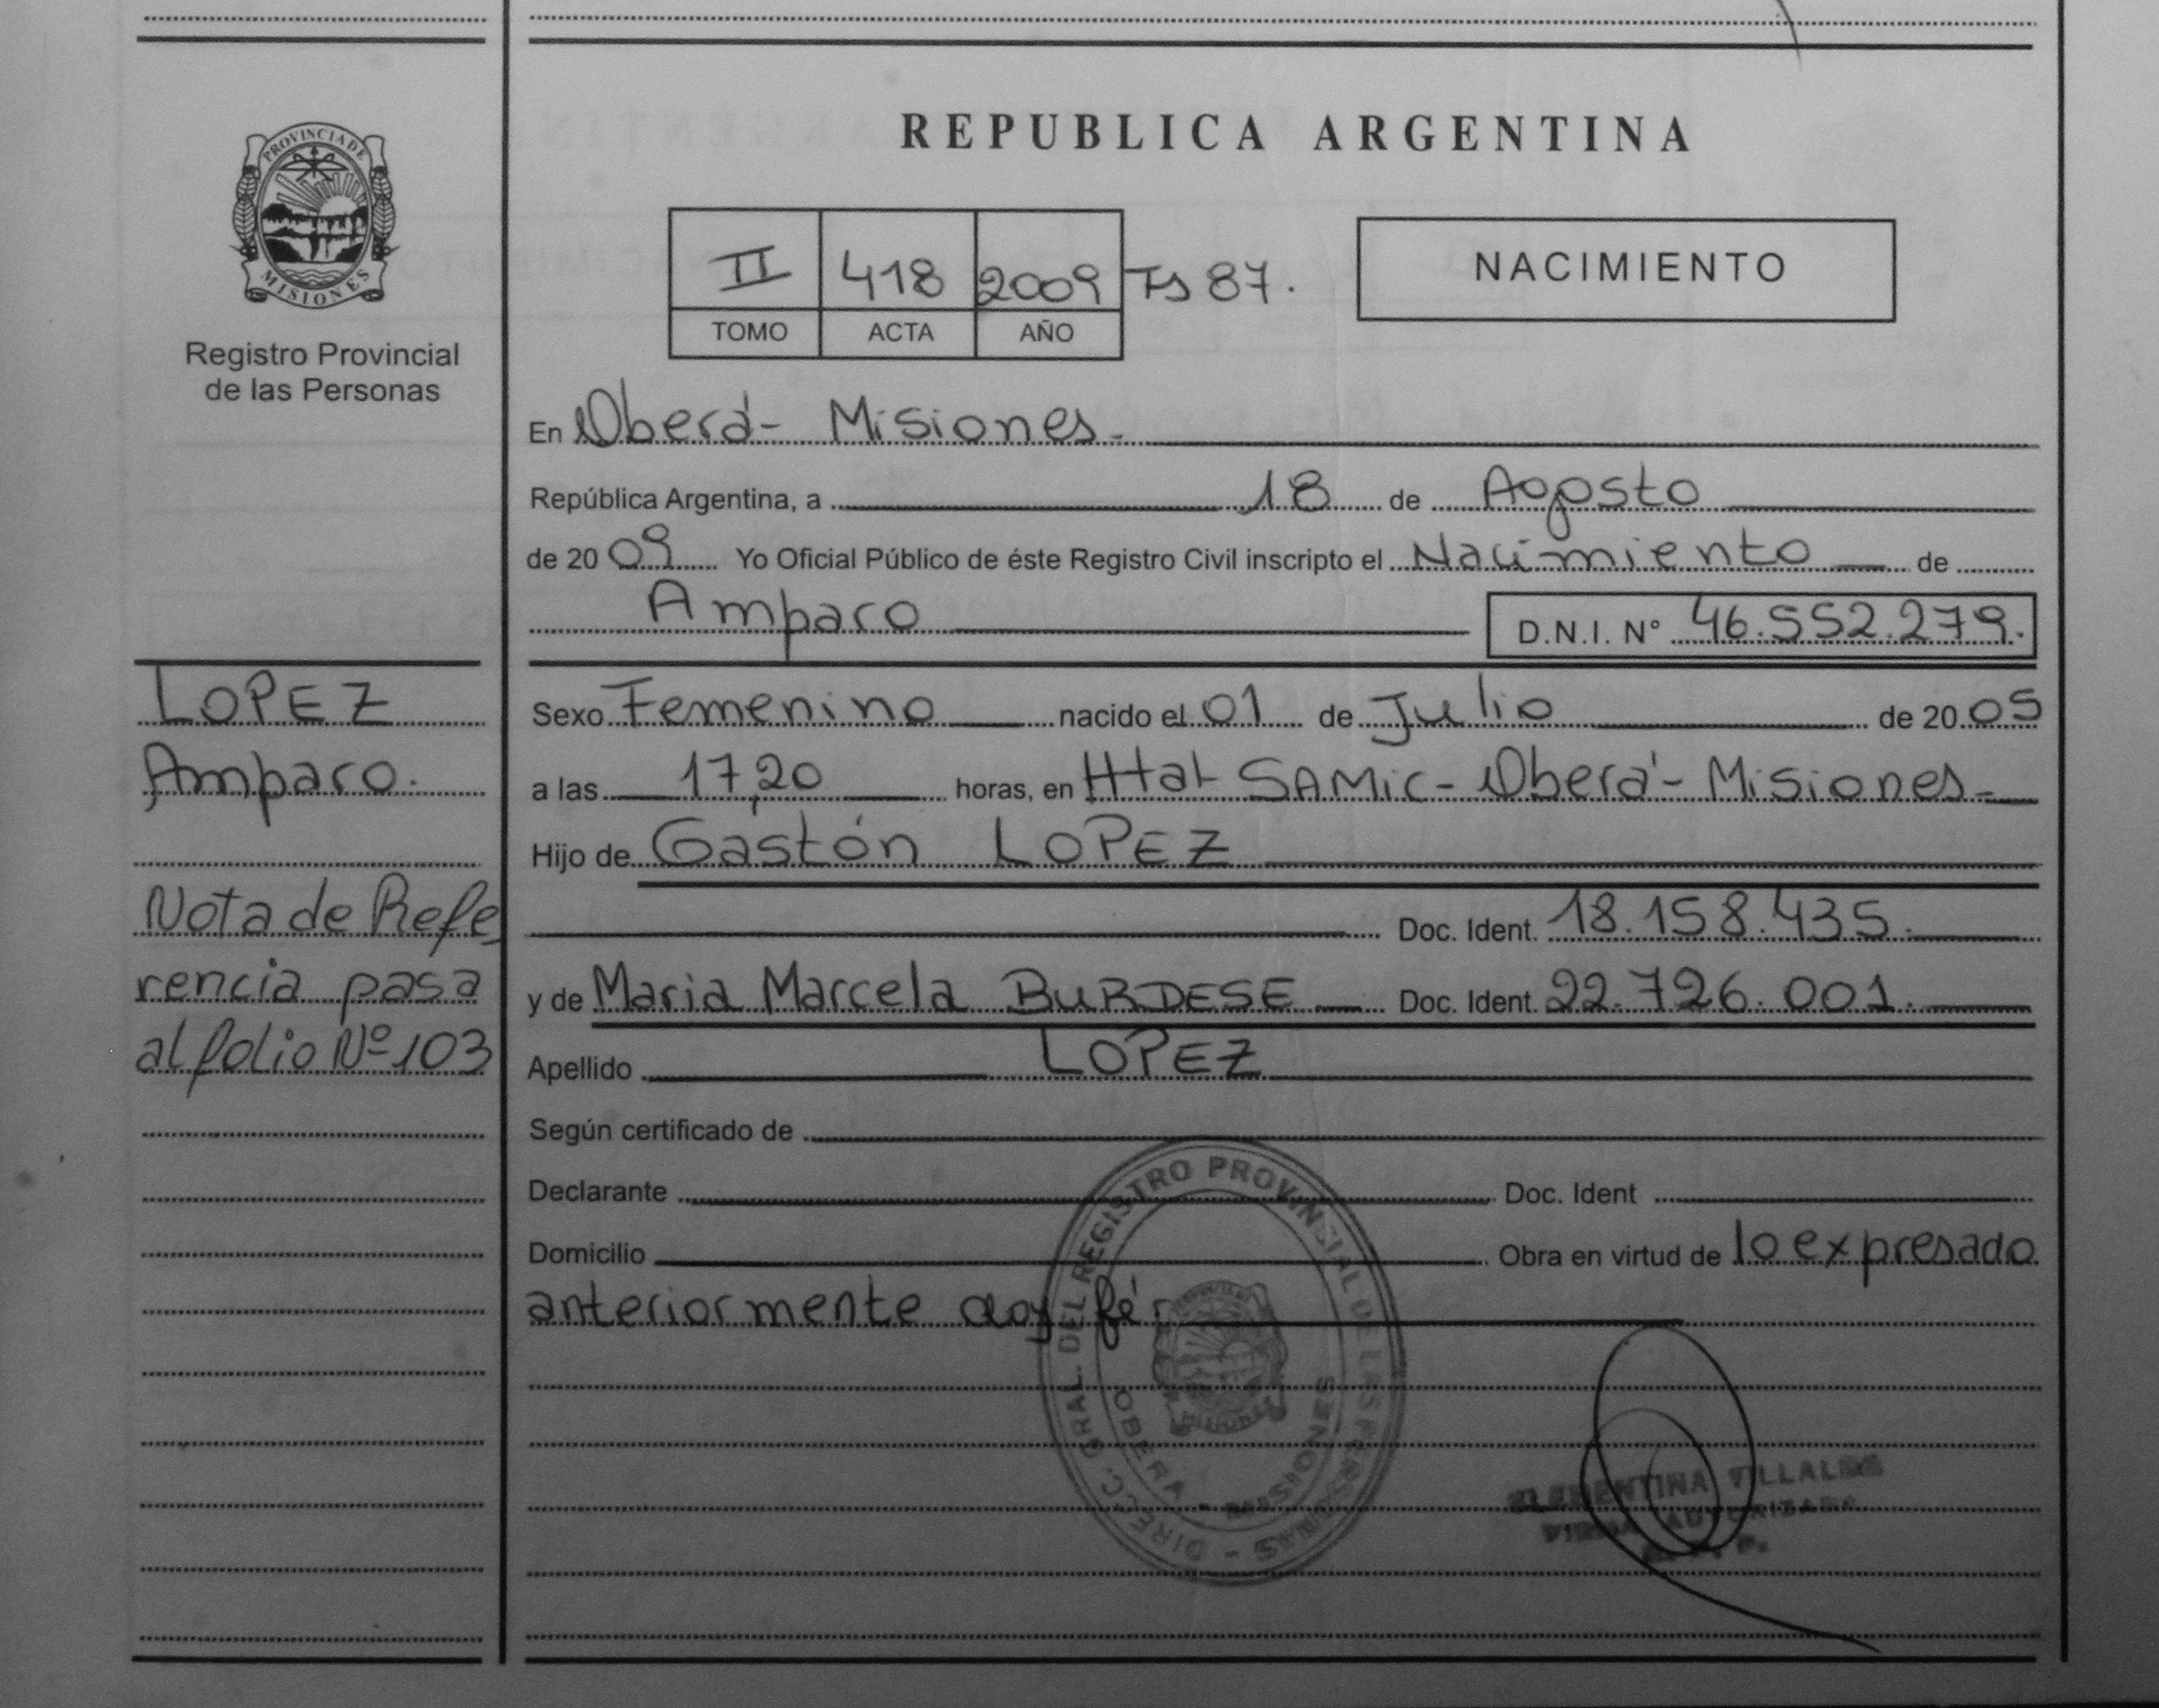 PROVINCIA DE
MISIONES
Registro Provincial
de las Personas
LOPEZ
Amparo.
Nota de Refe
rencia pasa
al folio Nº 103
REPUBLICA ARGENTINA
II 418 2009 Fs 87.
TOMO ACTA AÑO
NACIMIENTO
En Oberá - Misiones -
República Argentina, a 18 de Agosto
de 20 09 Yo Oficial Público de éste Registro Civil inscripto el Nacimiento de
Amparo D.N.I. N° 46.552.279.
Sexo Femenino nacido el 01 de Julio de 20 05
a las 17,20 horas, en Htal SAMIC - Oberá - Misiones -
Hijo de Gastón LOPEZ
Doc. Ident. 18.158.435.
y de Maria Marcela BURDESE Doc. Ident. 22.726.001.
Apellido LOPEZ
Según certificado de
Declarante Doc. Ident
Domicilio Obra en virtud de lo expresado
anteriormente doy fé
DIRECC. GRAL. DEL REGISTRO PROVINCIAL DE LAS PERSONAS -
OBERA - MISIONES
MISIONES
CLEMENTINA VILLALBA
FIRMA AUTORIZADA